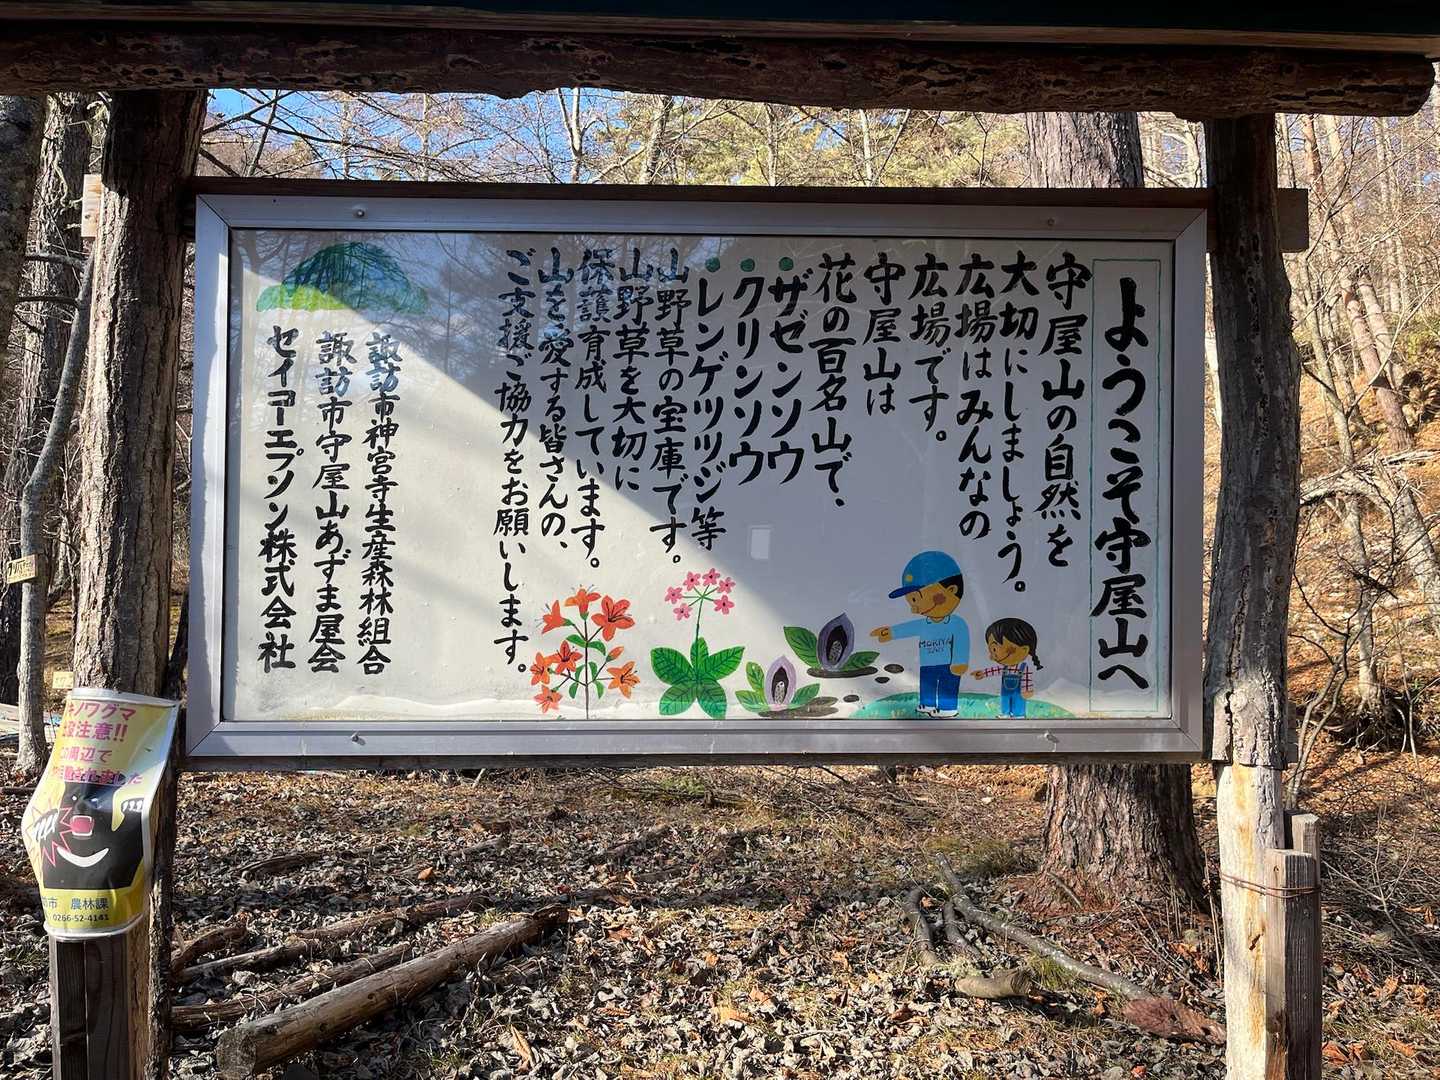 ようこそ守屋山へ
守屋山の自然を
大切にしましょう。
広場はみんなの
広場です。
守屋山は
花の百名山で、
ザゼンソウ
クリンソウ
レンゲツツジ等
山野草の宝庫です。
山野草を大切に
保護育成しています。
山を愛する皆さんの、
ご支援ご協力をお願いします。
諏訪市神宮寺生産森林組合
諏訪市守屋山あずま屋会
セイコーエプソン株式会社
MORIYA
キノワグマ
注意!!
周辺で
した
市 農林課
0266-52-4141